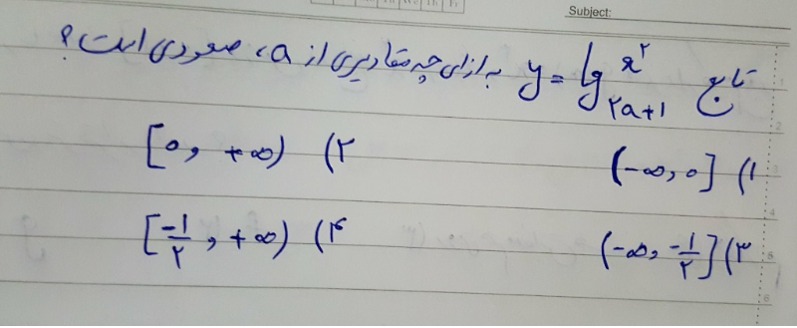 Subject:
تابع y = lg_{۲a+۱} x^۲ به ازای چه مقادیری از a، صعودی است؟
۱) (-∞, ۰]
۲) [۰, +∞)
۳) (-∞, -۱/۲]
۴) [-۱/۲, +∞)